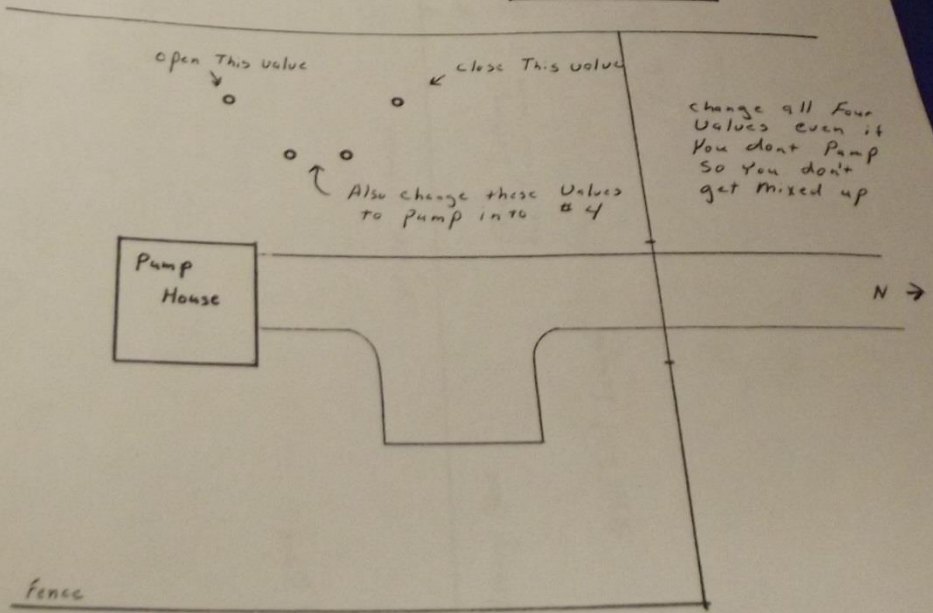 Open This valve
close This valve
change all Four
Valves even if
You dont Pump
So You don't
get mixed up
Also change these Valves
to pump into #4
Pump
House
N →
Fence